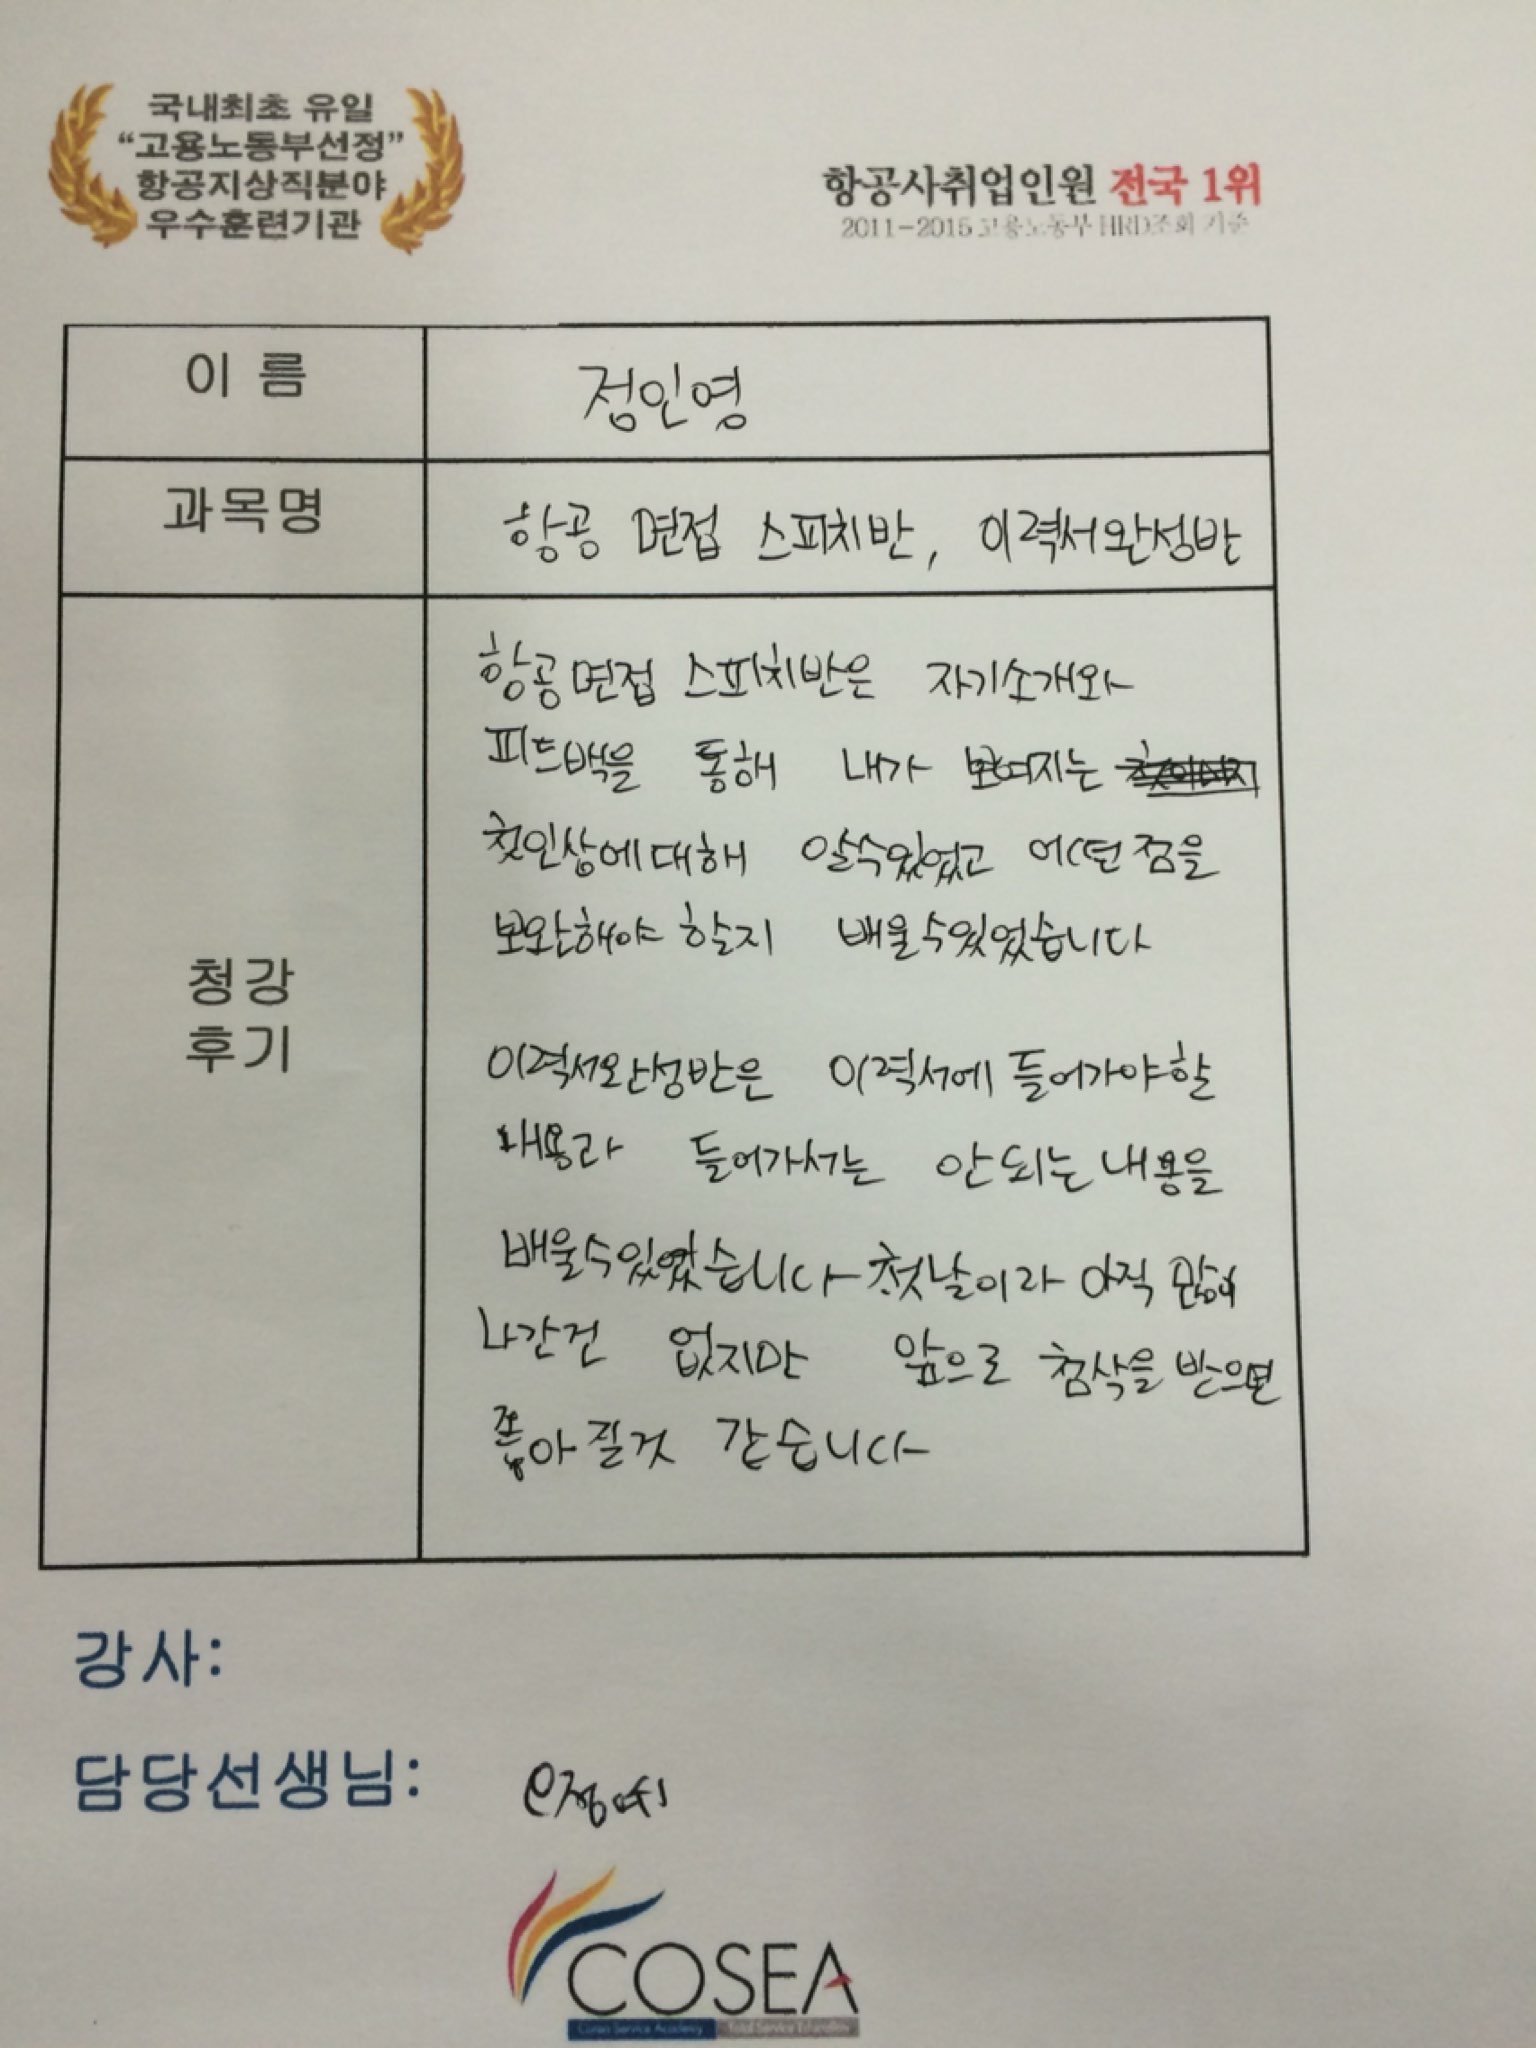 국내최초 유일
“고용노동부선정”
항공지상직분야
우수훈련기관
항공사취업인원 전국 1위
2011-2015 고용노동부 HRD조회 기준
이 름
정인영
과목명
항공 면접 스피치반, 이력서완성반
청강
후기
항공면접 스피치반은 자기소개와
피드백을 통해 내가 보여지는
첫인상에대해 알수있었고 어떤점을
보완해야 할지 배울수있었습니다
이력서완성반은 이력서에 들어가야할
내용과 들어가서는 안되는 내용을
배울수있었습니다 첫날이라 아직 많이
나간건 없지만 앞으로 첨삭을 받으면
좋아질것 같습니다
강사:
담당선생님:
COSEA
Corea Service Academy Total Service Education